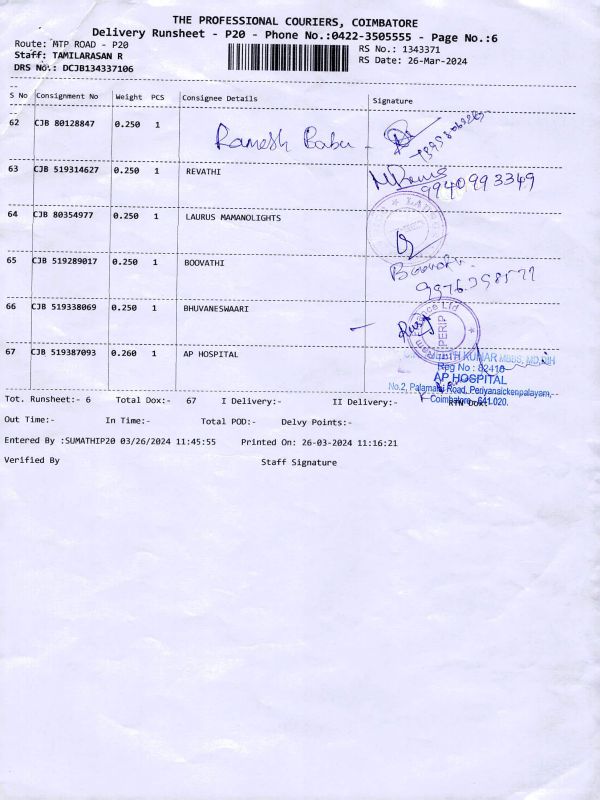 THE PROFESSIONAL COURIERS, COIMBATORE
Delivery Runsheet - P20 - Phone No.:0422-3505555 - Page No.:6
Route: MTP ROAD - P20
RS No.: 1343371
Staff: TAMILARASAN R
RS Date: 26-Mar-2024
DRS No.: DCJB134337106
S No Consignment No Weight PCS Consignee Details Signature
62 CJB 80128847 0.250 1 Ramesh Babu
63 CJB 519314627 0.250 1 REVATHI
9940993349
64 CJB 80354977 0.250 1 LAURUS MAMANOLIGHTS
65 CJB 519289017 0.250 1 BOOVATHI
66 CJB 519338069 0.250 1 BHUVANESWAARI
67 CJB 519387093 0.260 1 AP HOSPITAL
KUMAR MBBS, MD,
Reg No : 82410
AP HOSPITAL
No.2, Palamalai Road, Periyanaickenpalayam,
Coimbatore - 641 020.
Tot. Runsheet:- 6 Total Dox:- 67 I Delivery:- II Delivery:- RTN Dox:-
Out Time:- In Time:- Total POD:- Delvy Points:-
Entered By :SUMATHIP20 03/26/2024 11:45:55 Printed On: 26-03-2024 11:16:21
Verified By Staff Signature